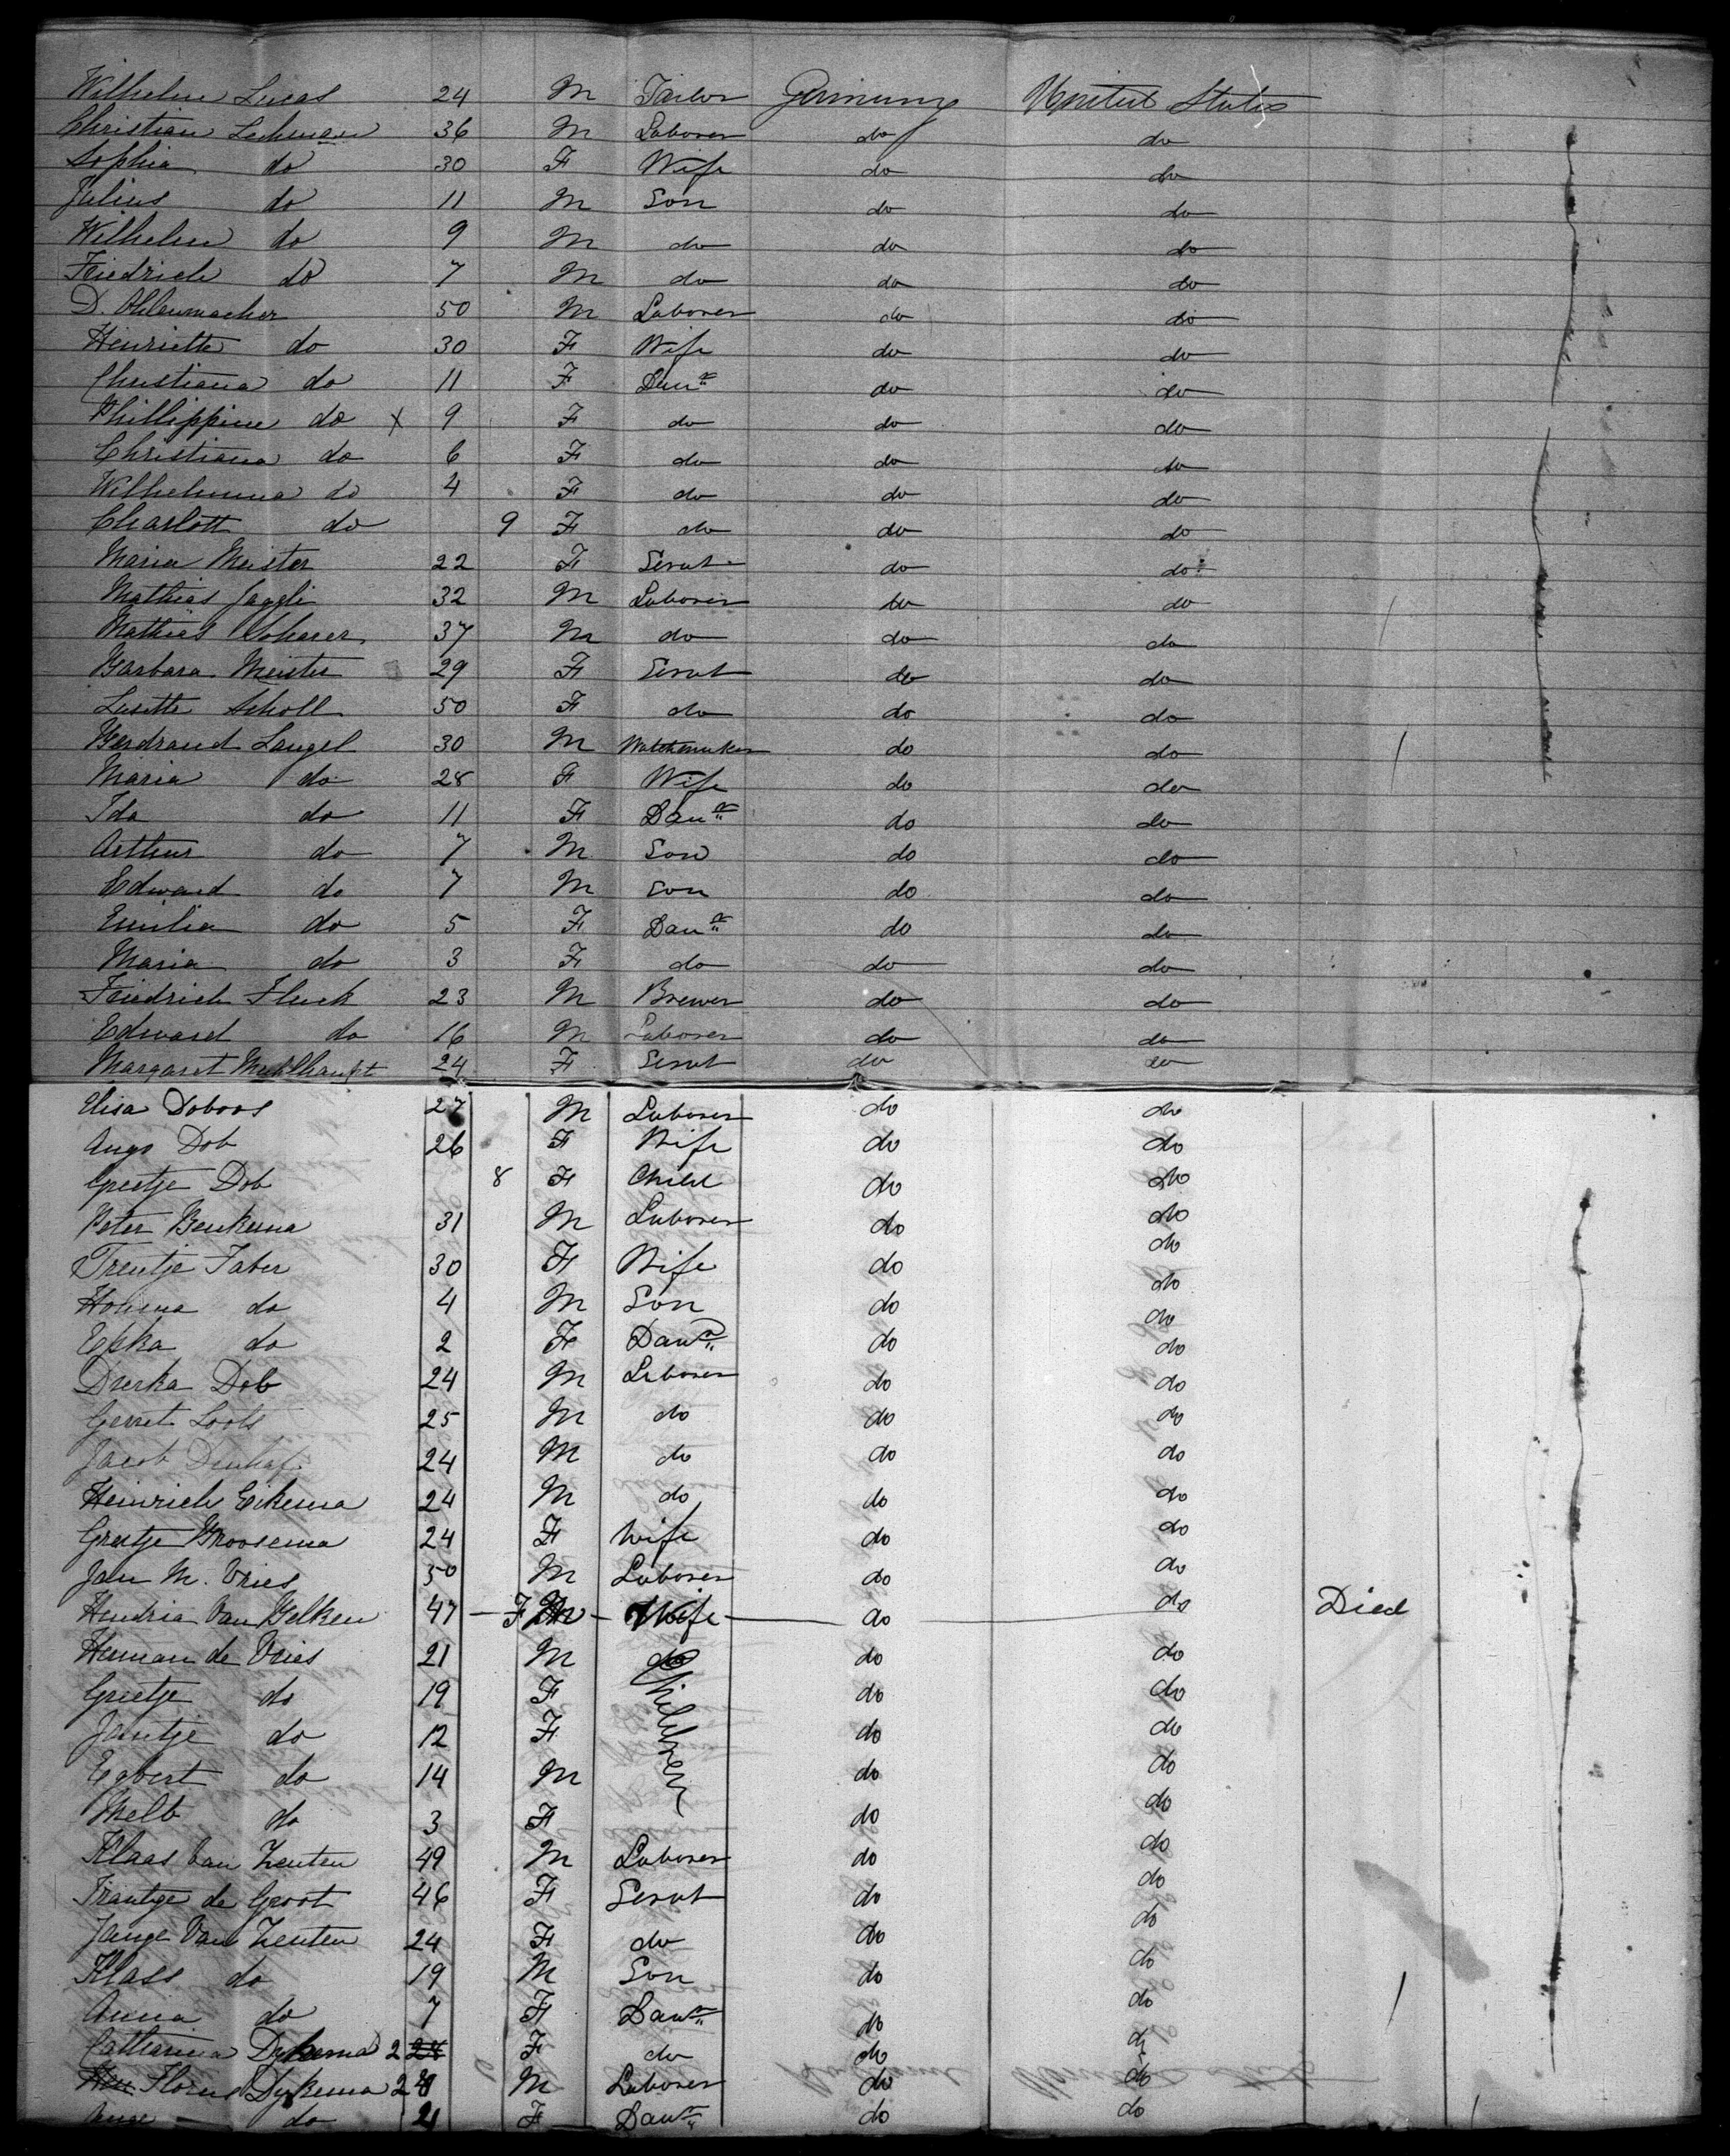 Wilhelm Lucas 24 M Tailor Germany United States
Christian Lehman 36 M Laborer do do
Sophia do 30 F Wife do do
Julius do 11 M Son do do
Wilhelm do 9 M do do do
Friedrich do 7 M do do do
D. Ohlenmacher 50 M Laborer do do
Henriette do 30 F Wife do do
Christiana do 11 F Daur do do
Phillippine do x 9 F do do do
Christiana do 6 F do do do
Wilhelmina do 4 F do do do
Charlott do 9 F do do do
Maria Meister 22 F Servt do do
Mathias Jaggli 32 M Laborer do do
Mathias Scharer 37 M do do do
Barbara Meister 29 F Servt do do
Lusette Scholl 50 F do do do
Berdrand Langel 30 M Watchmaker do do
Maria do 28 F Wife do do
Ida do 11 F Daur do do
Arthur do 7 M Son do do
Edward do 7 M Son do do
Emilia do 5 F Daur do do
Maria do 3 F do do do
Friedrich Fluck 23 M Brewer do do
Edward do 16 M Laborer do do
Margaret Muhlhaupt 24 F Servt do do
Elisa Doboos 27 M Laborer do do
Augo Dob 26 F Wife do do
Greetje Dob 8 F Child do do
Peter Beukema 31 M Laborer do do
Trentje Faber 30 F Wife do do
Houma do 4 M Son do do
Epka do 2 F Daur do do
Dierka Dob 24 M Laborer do do
Gerret Loots 25 M do do do
Jacob 24 M do do do
Heinrich Eikema 24 M do do do
Greetje Broosema 24 F Wife do do
Jan M. Vries 50 M Laborer do do
Hendria Van Gelken 47 F Wife do do Died
Herman de Vries 21 M do do do
Greetje do 19 F Children do do
Jantje do 12 F do do
Egbert do 14 M do do
Melb do 3 F do do
Klaas Van Zeuten 49 M Laborer do do
Trautje de Groot 46 F Servt do do
Jange Van Zeuten 24 F do do do
Klass do 19 M Son do do
Anna do 7 F Daur do do
Catharina Dykema 2 24 F do do do
Florus Dykema 24 M Laborer do do
Ange do 21 F Daur do do